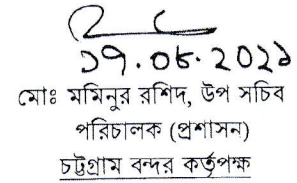 ১৭.০৮.২০২১
মোঃ মমিনুর রশিদ, উপ সচিব
পরিচালক (প্রশাসন)
চট্টগ্রাম বন্দর কর্তৃপক্ষ